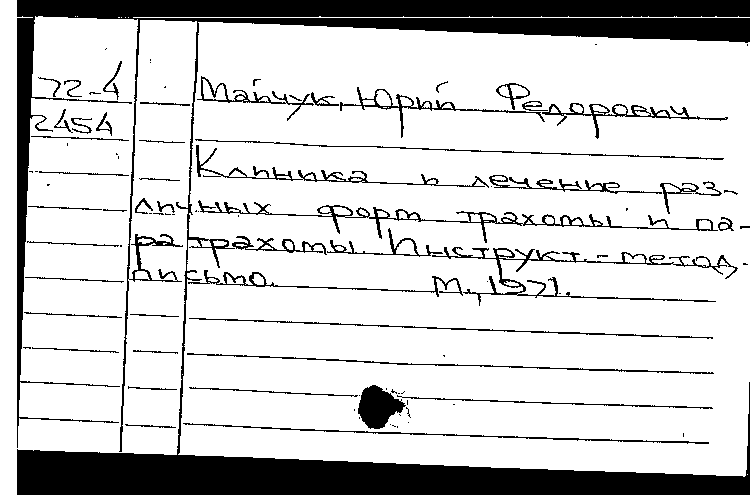 72-4
2454
Майчук, Юрий Федорович
Клиника и лечение раз-
личных форм трахомы и па-
ратрахомы. Инструкт.-метод.
письмо. М., 1971.